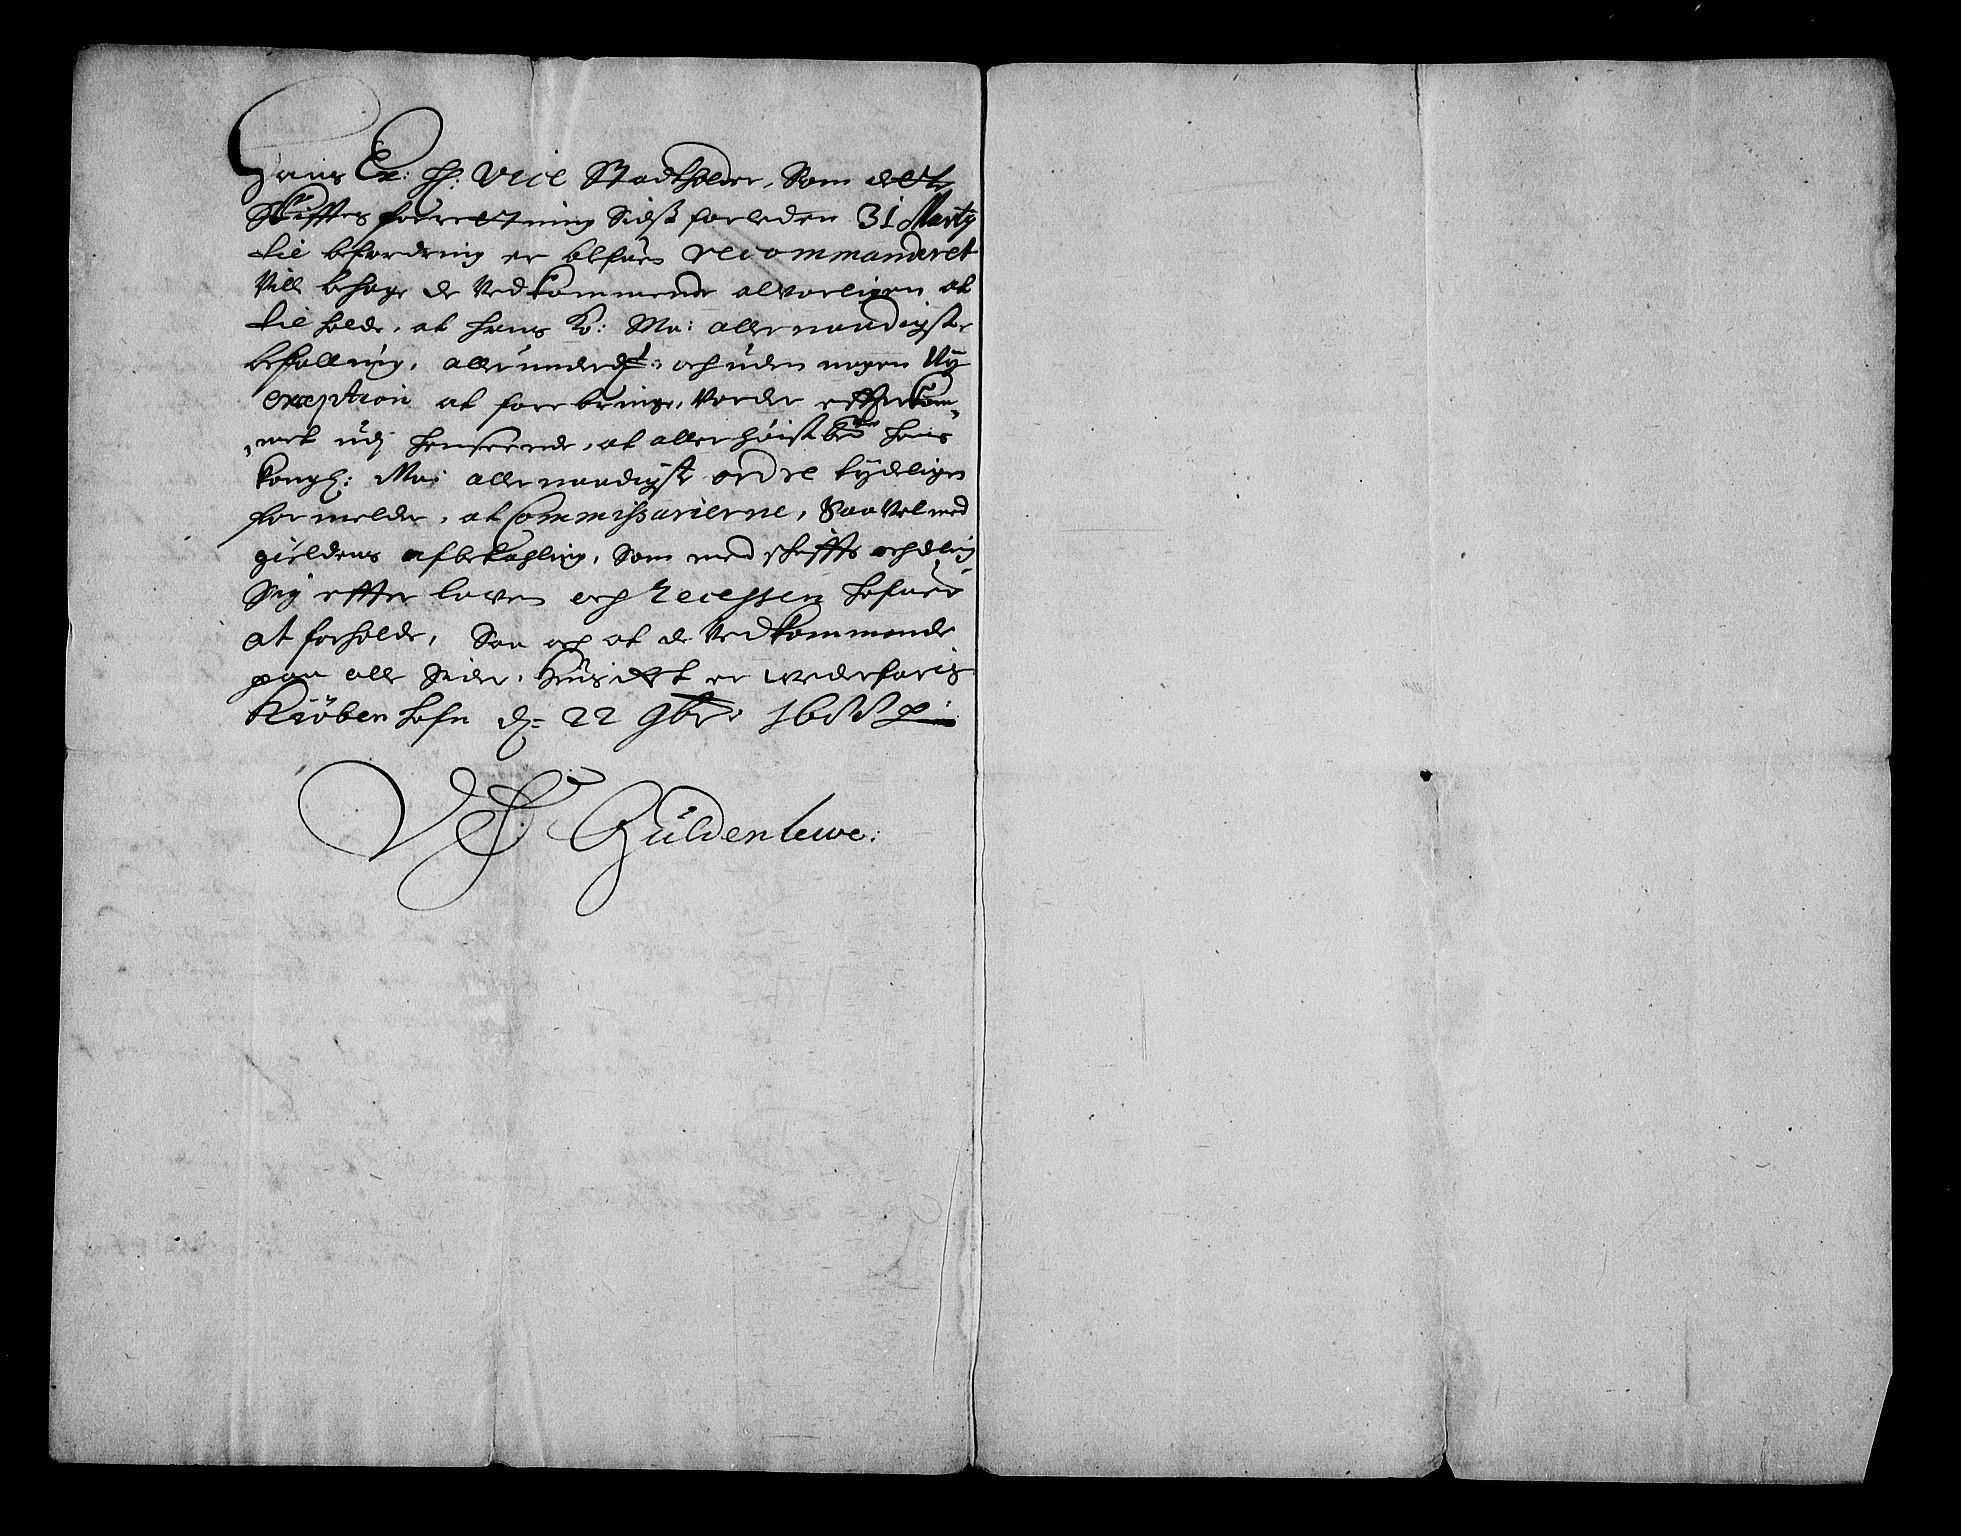 Hans Ex: H: Vice Stadtholder, Som dette
Skifftes forretning Sidst forleden 31 Marty
til befordring er blefuen recommanderet
Vill behage de Vedkommende alvorligen at
tilholde, at Hans Ko: Ma: allernaadigste
befalling, allerunderd:t och uden nogen Ny
exception at forebringe, Vorder efterkom¬
met udj henseende, at allerhøistbe:te Hans
Kongl: Ma: allernaadigst ordre tydeligen
formelder, at Commissarierne, Saavel med
gieldens afbetahling, Som med skiffts och deling
Sig effter loven och Recessen hafuer
at forholde, Saa och at de Vedkommende
paa alle Sider, er wederfaris
Kiöbenhafn d: 22 9br: 1688
VF Güldenlewe: